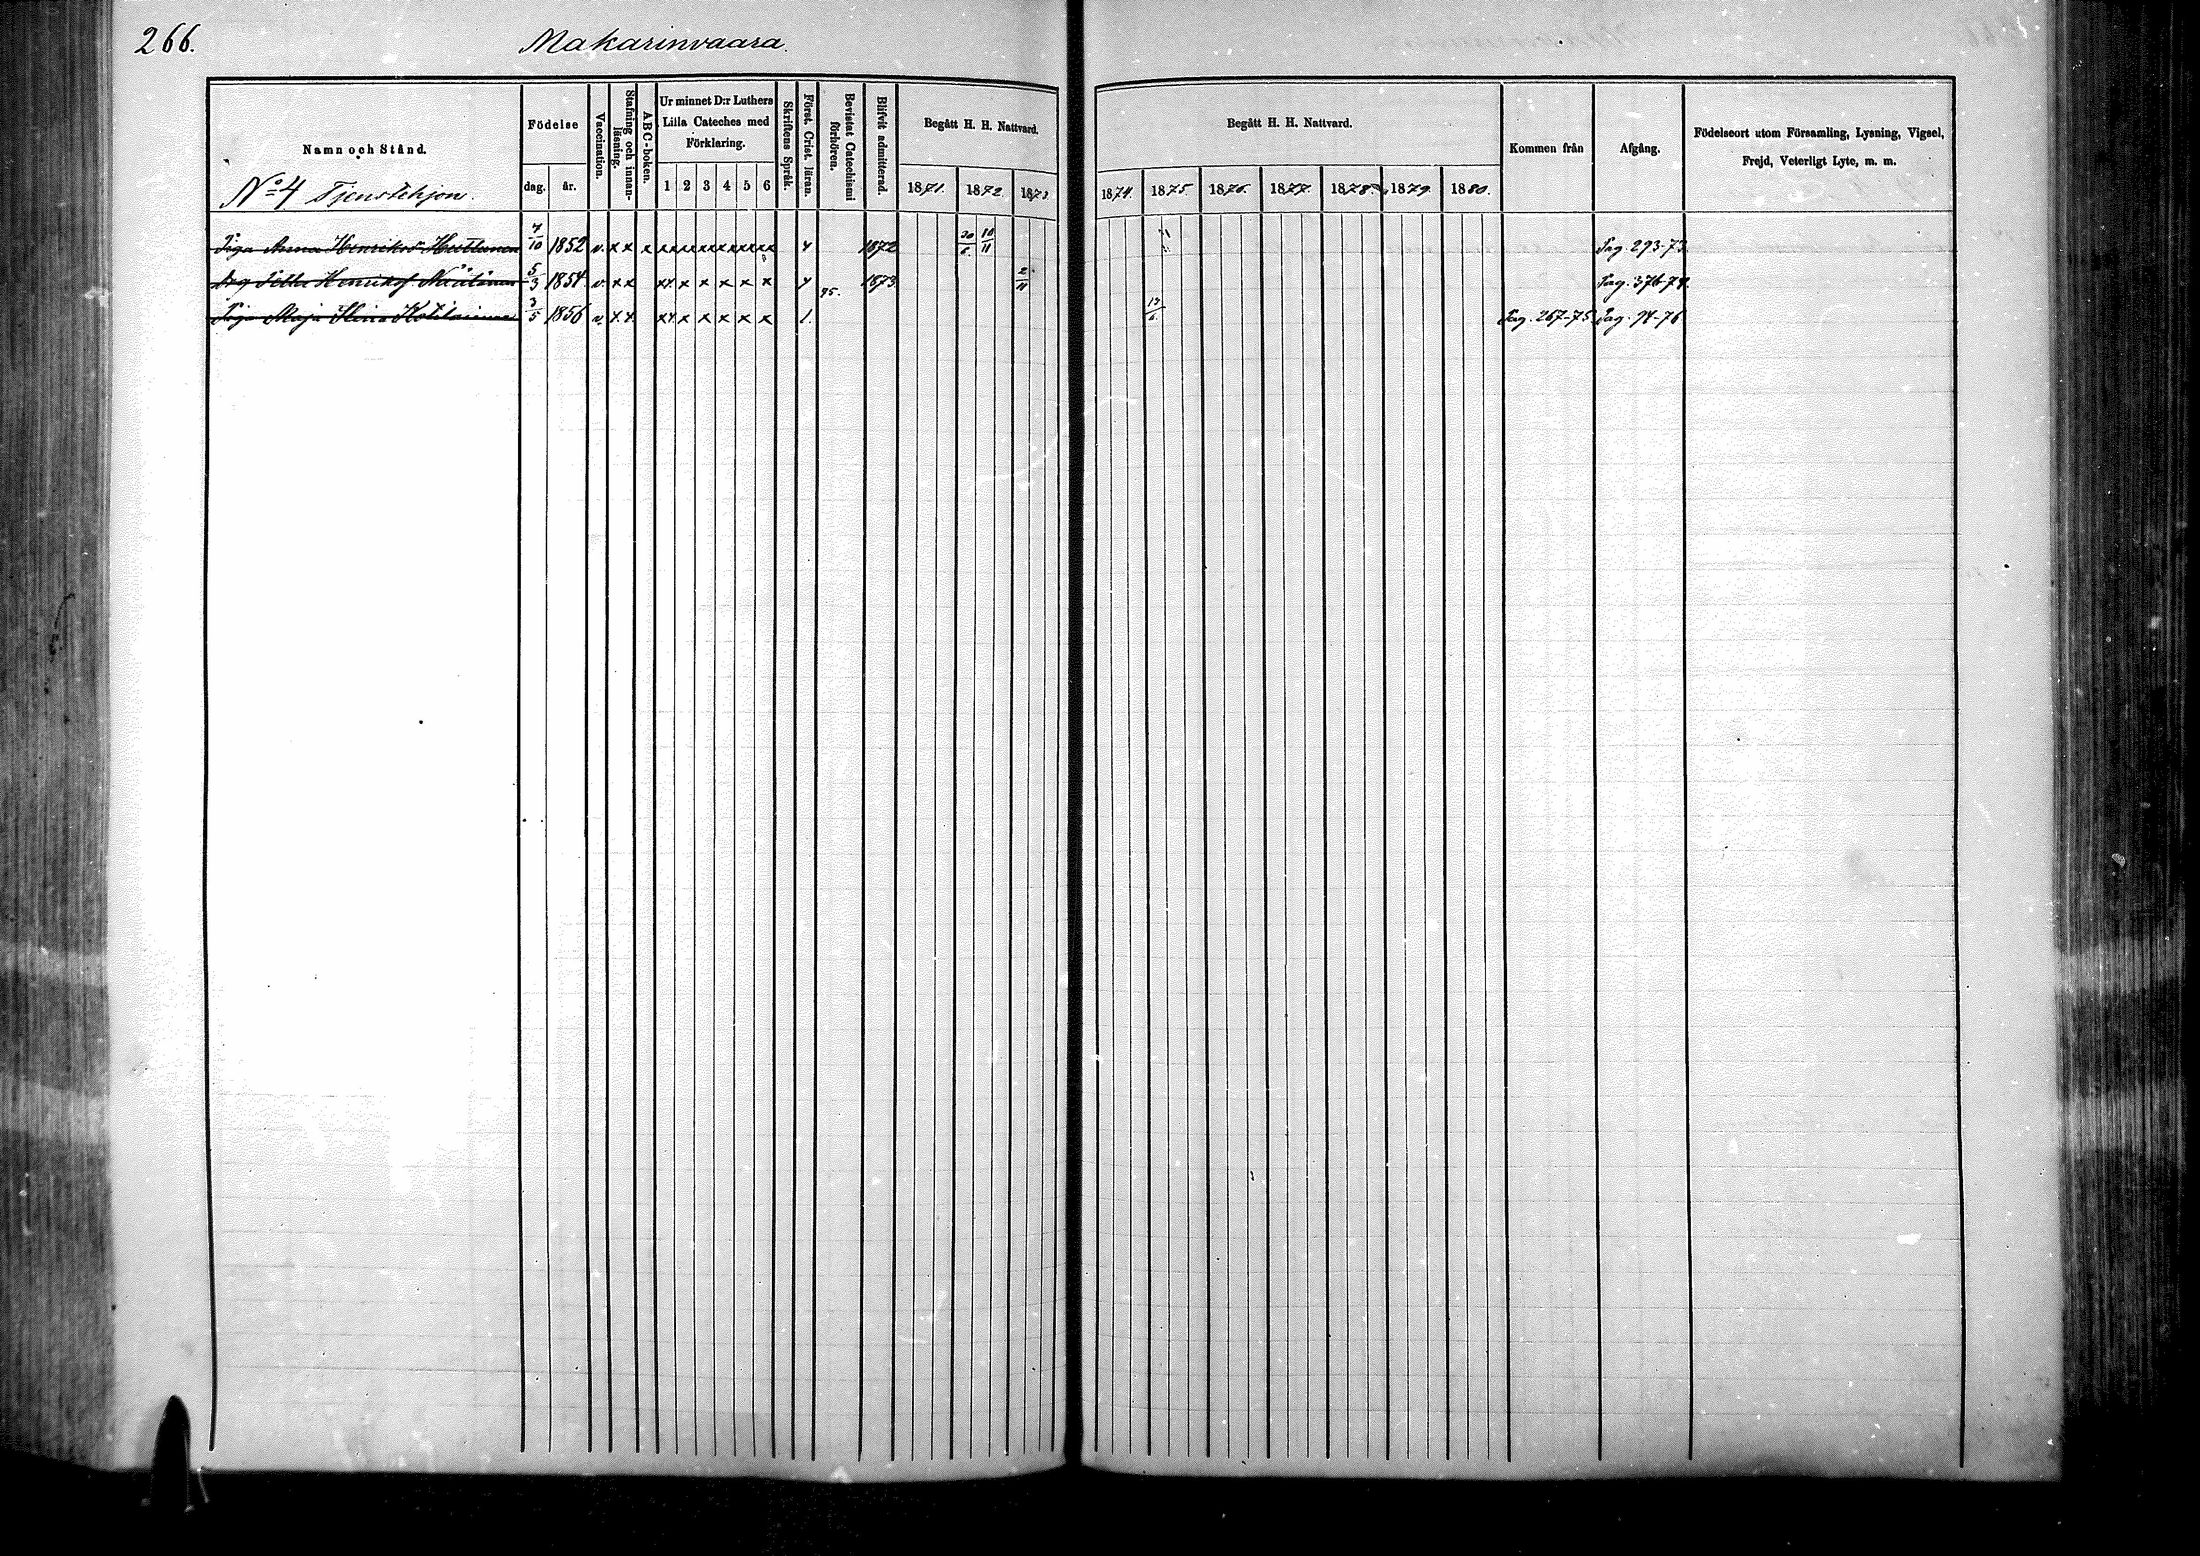 266.
Makarinvaara.
Namn och Stånd.
Födelse
dag.
år.
Vaccination.
Stafning och innan-
läsning.
ABC-boken.
Ur minnet D:r Luthers
Lilla Cateches med
Förklaring.
1 2 3 4 5 6
Skriftens Språk.
Först. Crist. läran.
Bevistat Catechismi
förhören.
Blifvit admitterad.
Begått H. H. Nattvard.
1871. 1872. 1873.
Begått H. H. Nattvard.
1874. 1875. 1876. 1877. 1878. 1879. 1880.
Kommen från
Afgång.
Födelseort utom Församling, Lysning, Vigsel,
Frejd, Veterligt Lyte, m. m.
No 4 Tjenstehjon.
Piga Anna Henriksdr 7/10 1852 v. x x x x x x x x x x x x x x 4 1872 10/11 Pag. 293-73.
Drg Petter Henrikss 5/3 1854 v. x x x x x x x x x 4 75. 1873 2/11 Pag. 376-74.
Piga Maja Stina 3/5 1856 v. x x x x x x x x x 1. 13/6 Pag. 267-75 Pag. 94-76